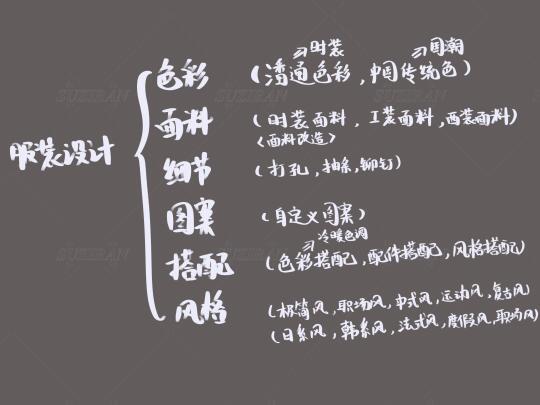 →时装 →国潮
色彩 (潘通色彩,中国传统色)
面料 (时装面料,工装面料,西装面料)
<面料改造>
服装设计
细节 (打孔,抽条,铆钉)
图案 (自定义图案)
→冷暖色调
搭配 (色彩搭配,配件搭配,风格搭配)
风格 (极简风,职场风,中式风,运动风,复古风
(日系风,韩系风,法式风,度假风,职场风)
SUZIRAN